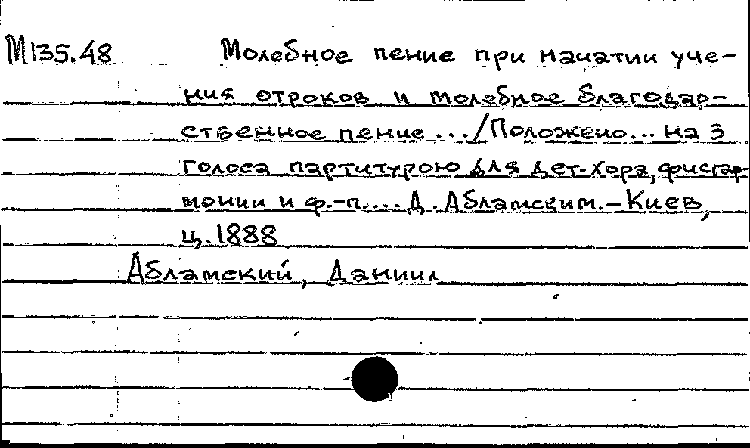 М135.48 Молебное пение при начатии уче-
ния отроков и молебное благодар-
ственное пение.../Положено... на 3
голоса партитурою для дет.хора, фисгар
монии и ф.-п.... Д. Абламским.-Киев,
ц.1888
Абламский, Даниил